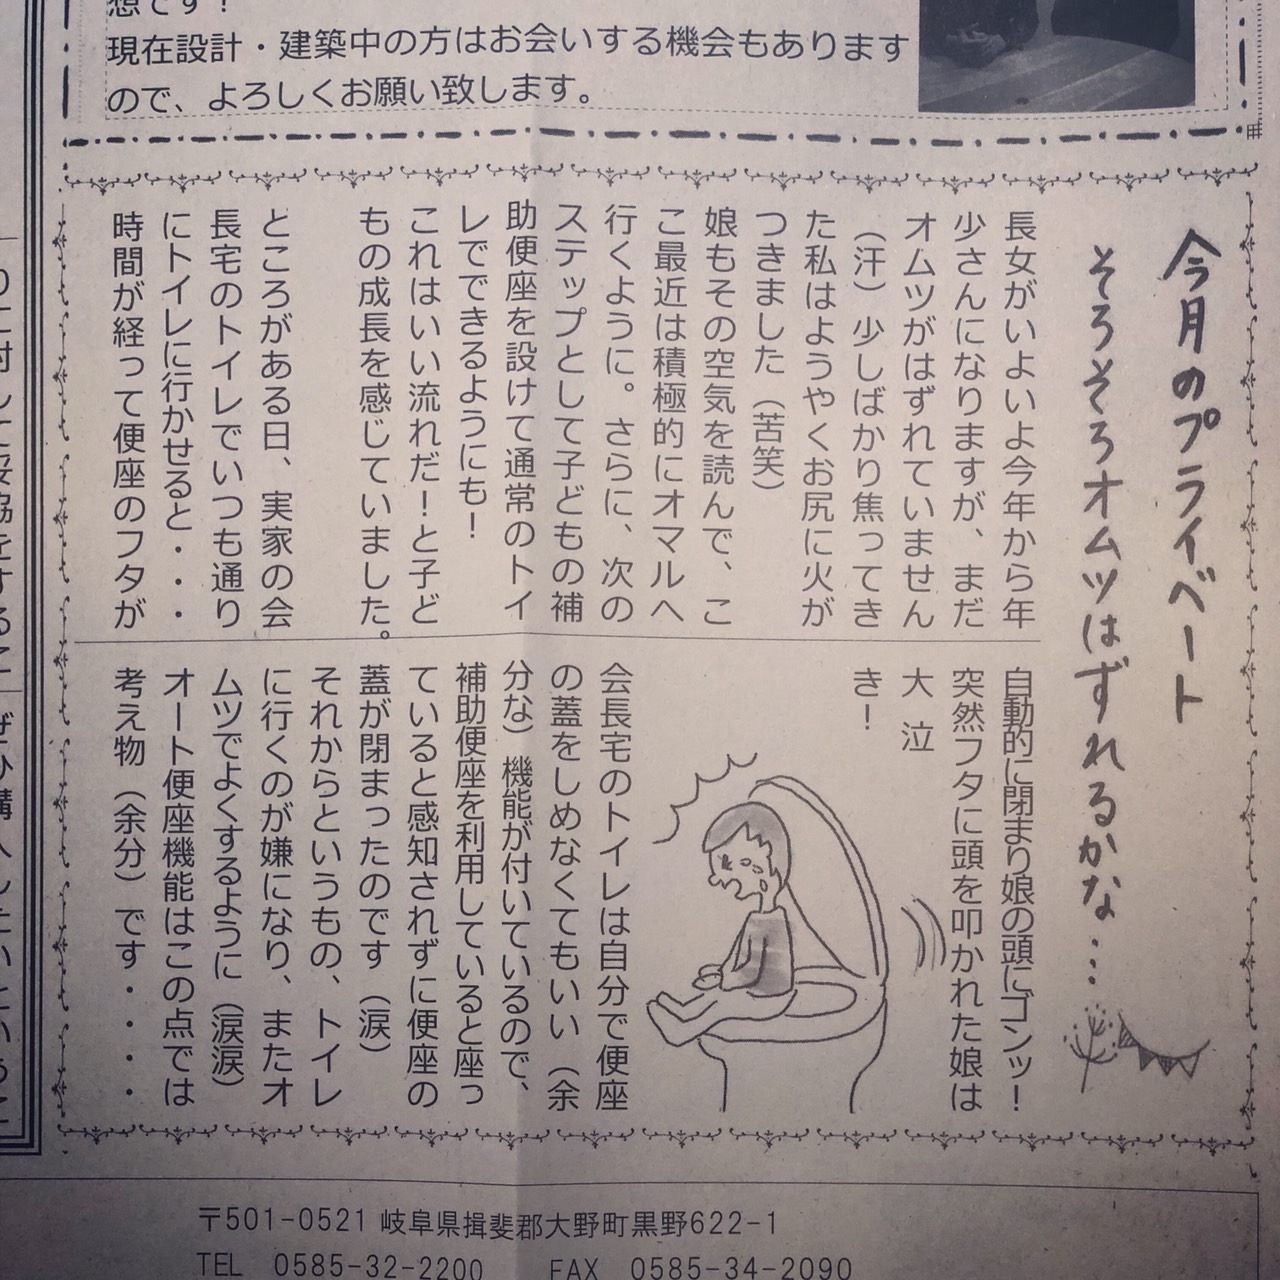 想です！
現在設計・建築中の方はお会いする機会もあります
ので、よろしくお願い致します。
今月のプライベート
そろそろオムツはずれるかな…
長女がいよいよ今年から年
少さんになりますが、まだ
オムツがはずれていません
（汗）少しばかり焦ってき
た私はようやくお尻に火が
つきました（苦笑）
娘もその空気を読んで、こ
こ最近は積極的にオマルへ
行くように。さらに、次の
ステップとして子どもの補
助便座を設けて通常のトイ
レでできるようにも！
これはいい流れだ！と子ど
もの成長を感じていました。
ところがある日、実家の会
長宅のトイレでいつも通り
にトイレに行かせると・・・
時間が経って便座のフタが
自動的に閉まり娘の頭にゴンッ！
突然フタに頭を叩かれた娘は
大泣
き！
会長宅のトイレは自分で便座
の蓋をしめなくてもいい（余
分な）機能が付いているので、
補助便座を利用していると座っ
ていると感知されずに便座の
蓋が閉まったのです（涙）
それからというもの、トイレ
に行くのが嫌になり、またオ
ムツでよくするように（涙涙）
オート便座機能はこの点では
考え物（余分）です・・・・
〒501-0521 岐阜県揖斐郡大野町黒野622-1
TEL 0585-32-2200 FAX 0585-34-2090